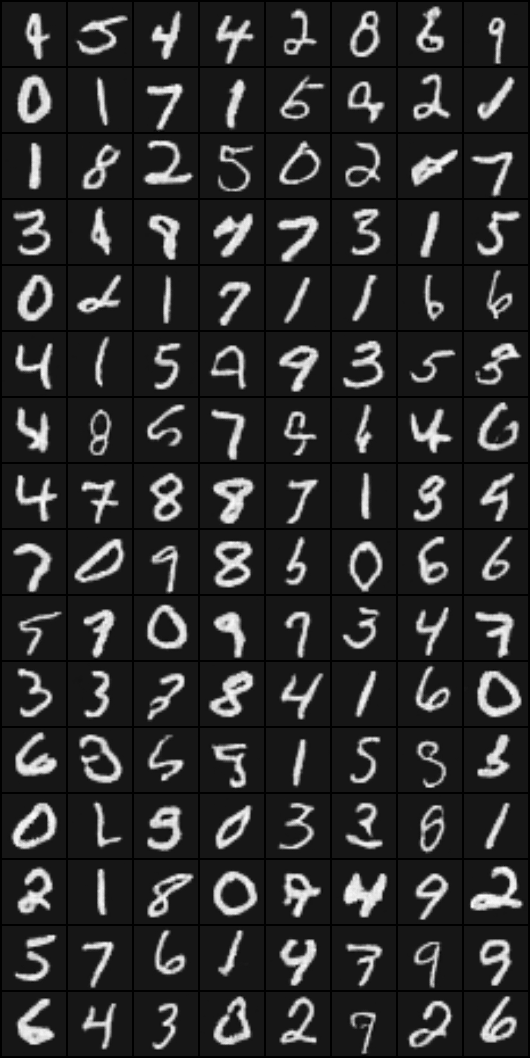 4 5 4 4 2 8 6 9
0 1 7 1 5 2 1
1 8 2 5 0 2 7
3 9 7 7 3 1 5
0 1 7 1 1 6 6
4 1 5 9 9 3 5 3
4 8 5 7 4 6
4 7 8 8 7 1 9
7 0 9 8 5 0 6 6
5 7 0 9 7 3 4 7
3 3 8 4 1 6 0
6 5 1 5 3
0 1 9 0 3 3 8 1
2 1 8 0 4 9 2
5 7 6 1 4 7 9 9
6 4 3 0 2 9 2 6